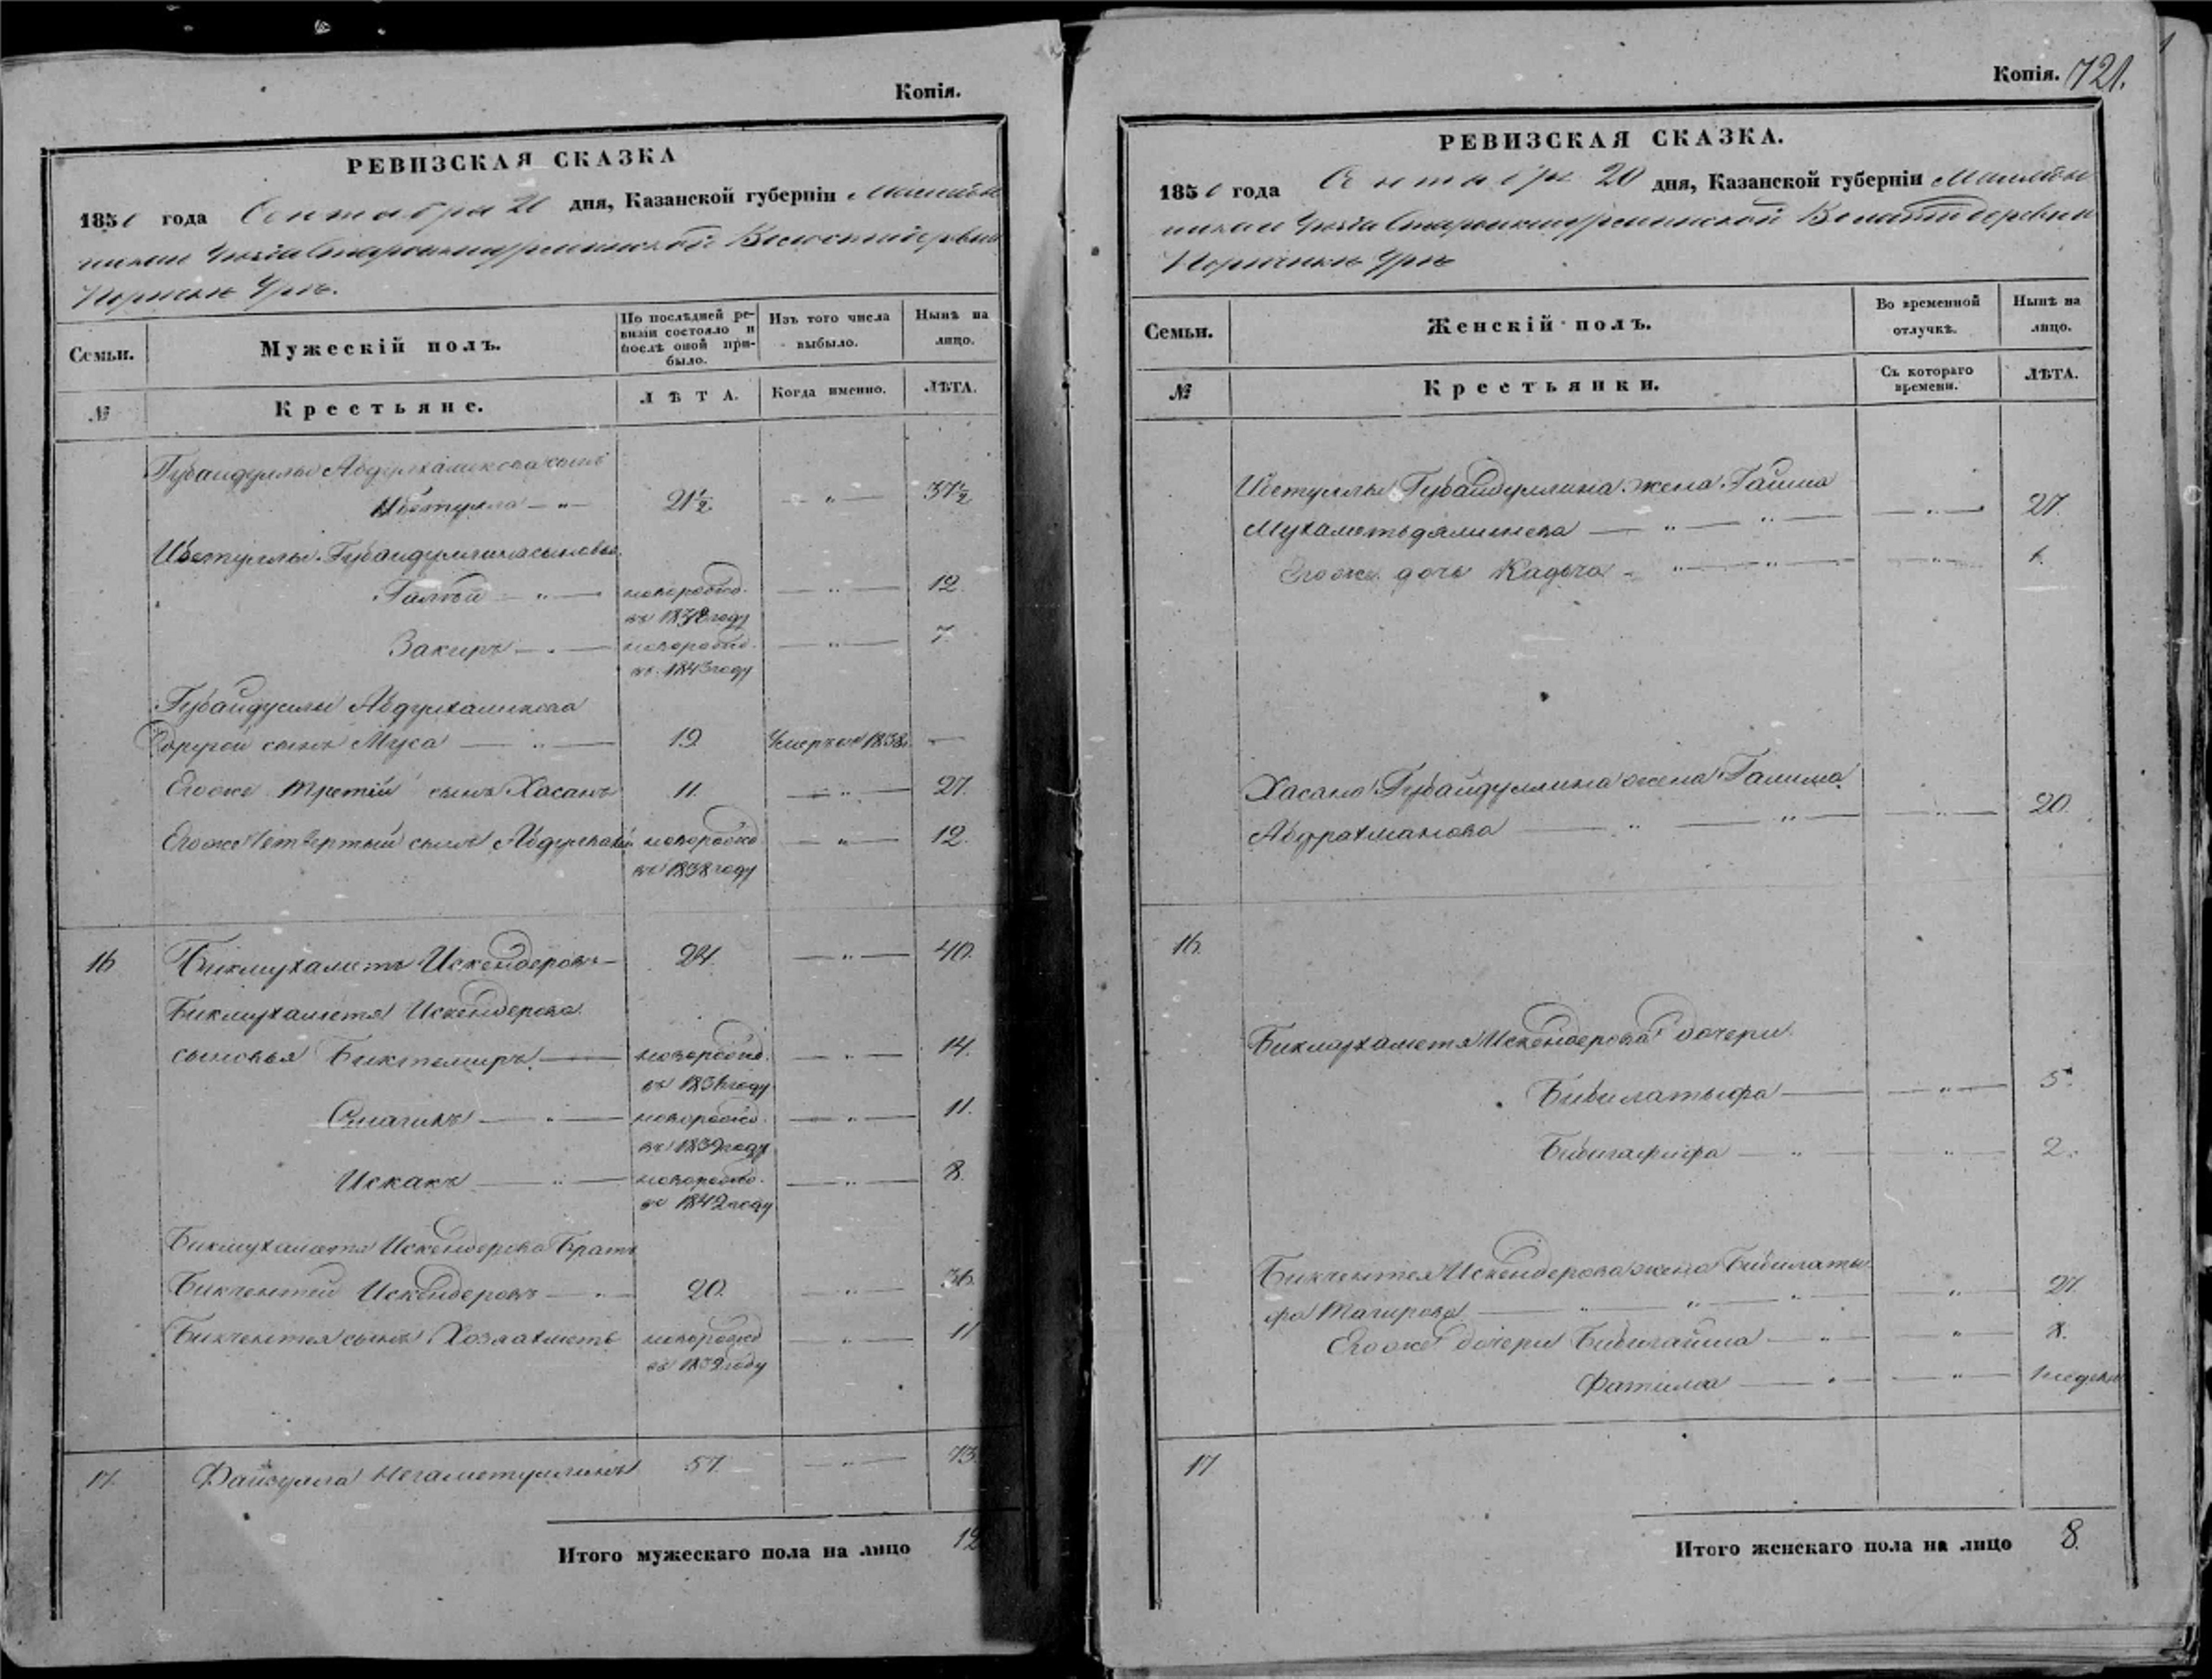 Копія.
РЕВИЗСКАЯ СКАЗКА
1850 года Сентября 20 дня, Казанской губерніи Мамадыш
скаго Уѣзда деревни
Семьи.
Мужескій полъ.
По послѣдней ре-
визіи состояло и
послѣ оной при-
было.
Изъ того числа
выбыло.
Нынѣ на
лицо.
№
Крестьяне.
ЛѢТА.
Когда именно.
ЛѢТА.
Губайдуллы Абдулхаликова сынъ
21½ — " — 37½
Губайдуллина сыновья
новорожд. — " — 12
въ 1838 году
Закиръ — " — новорожд. — " — 7.
въ 1843 году
Губайдуллы Абдулхаликова
другой сынъ Муса — " — 19 Умеръ въ 1838. —
Егоже третій сынъ Хасанъ 11. — " — 27.
Егоже четвертый сынъ новорожд — " — 12.
въ 1838 году
16 Бикмухаметъ Искендеровъ — 24. — " — 40.
Бикмухаметя Искендерова
сыновья Биктемиръ — новорожд. — " — 14.
въ 1836 году
Смагилъ — " — новорожд. — " — 11.
въ 1839 году
Искакъ — " — новорожд. — " — 8.
въ 1842 году
Бикмухаметя Искендерова братъ
Бикчентей Искендеровъ — " — 20. — " — 36.
Бикчентея сынъ Хозяахметь новорожд — " — 11
въ 1839 году
17. Файзулла Негаметуллинъ 57. — " — 73.
Итого мужескаго пола на лицо 12
Копія. 721.
РЕВИЗСКАЯ СКАЗКА.
1850 года Сентября 20 дня, Казанской губерніи Мамадыш
скаго Уѣзда деревни
Семьи.
Женскій полъ.
Во временной
отлучкѣ.
Нынѣ на
лицо.
№
Крестьянки.
Съ котораго
времени.
ЛѢТА.
Губайдуллина жена Гайша
— " — " — — " — 27.
Егоже дочь Кадыча — " — " — — " — 1.
Хасана Губайдуллина жена Галима
Абдрахманова — " — " — — " — 20.
16.
Бикмухаметя Искендерова дочери
Бибилатыфа — — " — 5.
Бибигафифа — " — " — 2.
Бикчентея Искендерова жена Бибилаты
фа Тагирова — " — " — " — — " — 27.
Егоже дочери Бибигайша — " — — " — 8.
Фатима — " — — " — 1 недели
17
Итого женскаго пола на лицо 8.